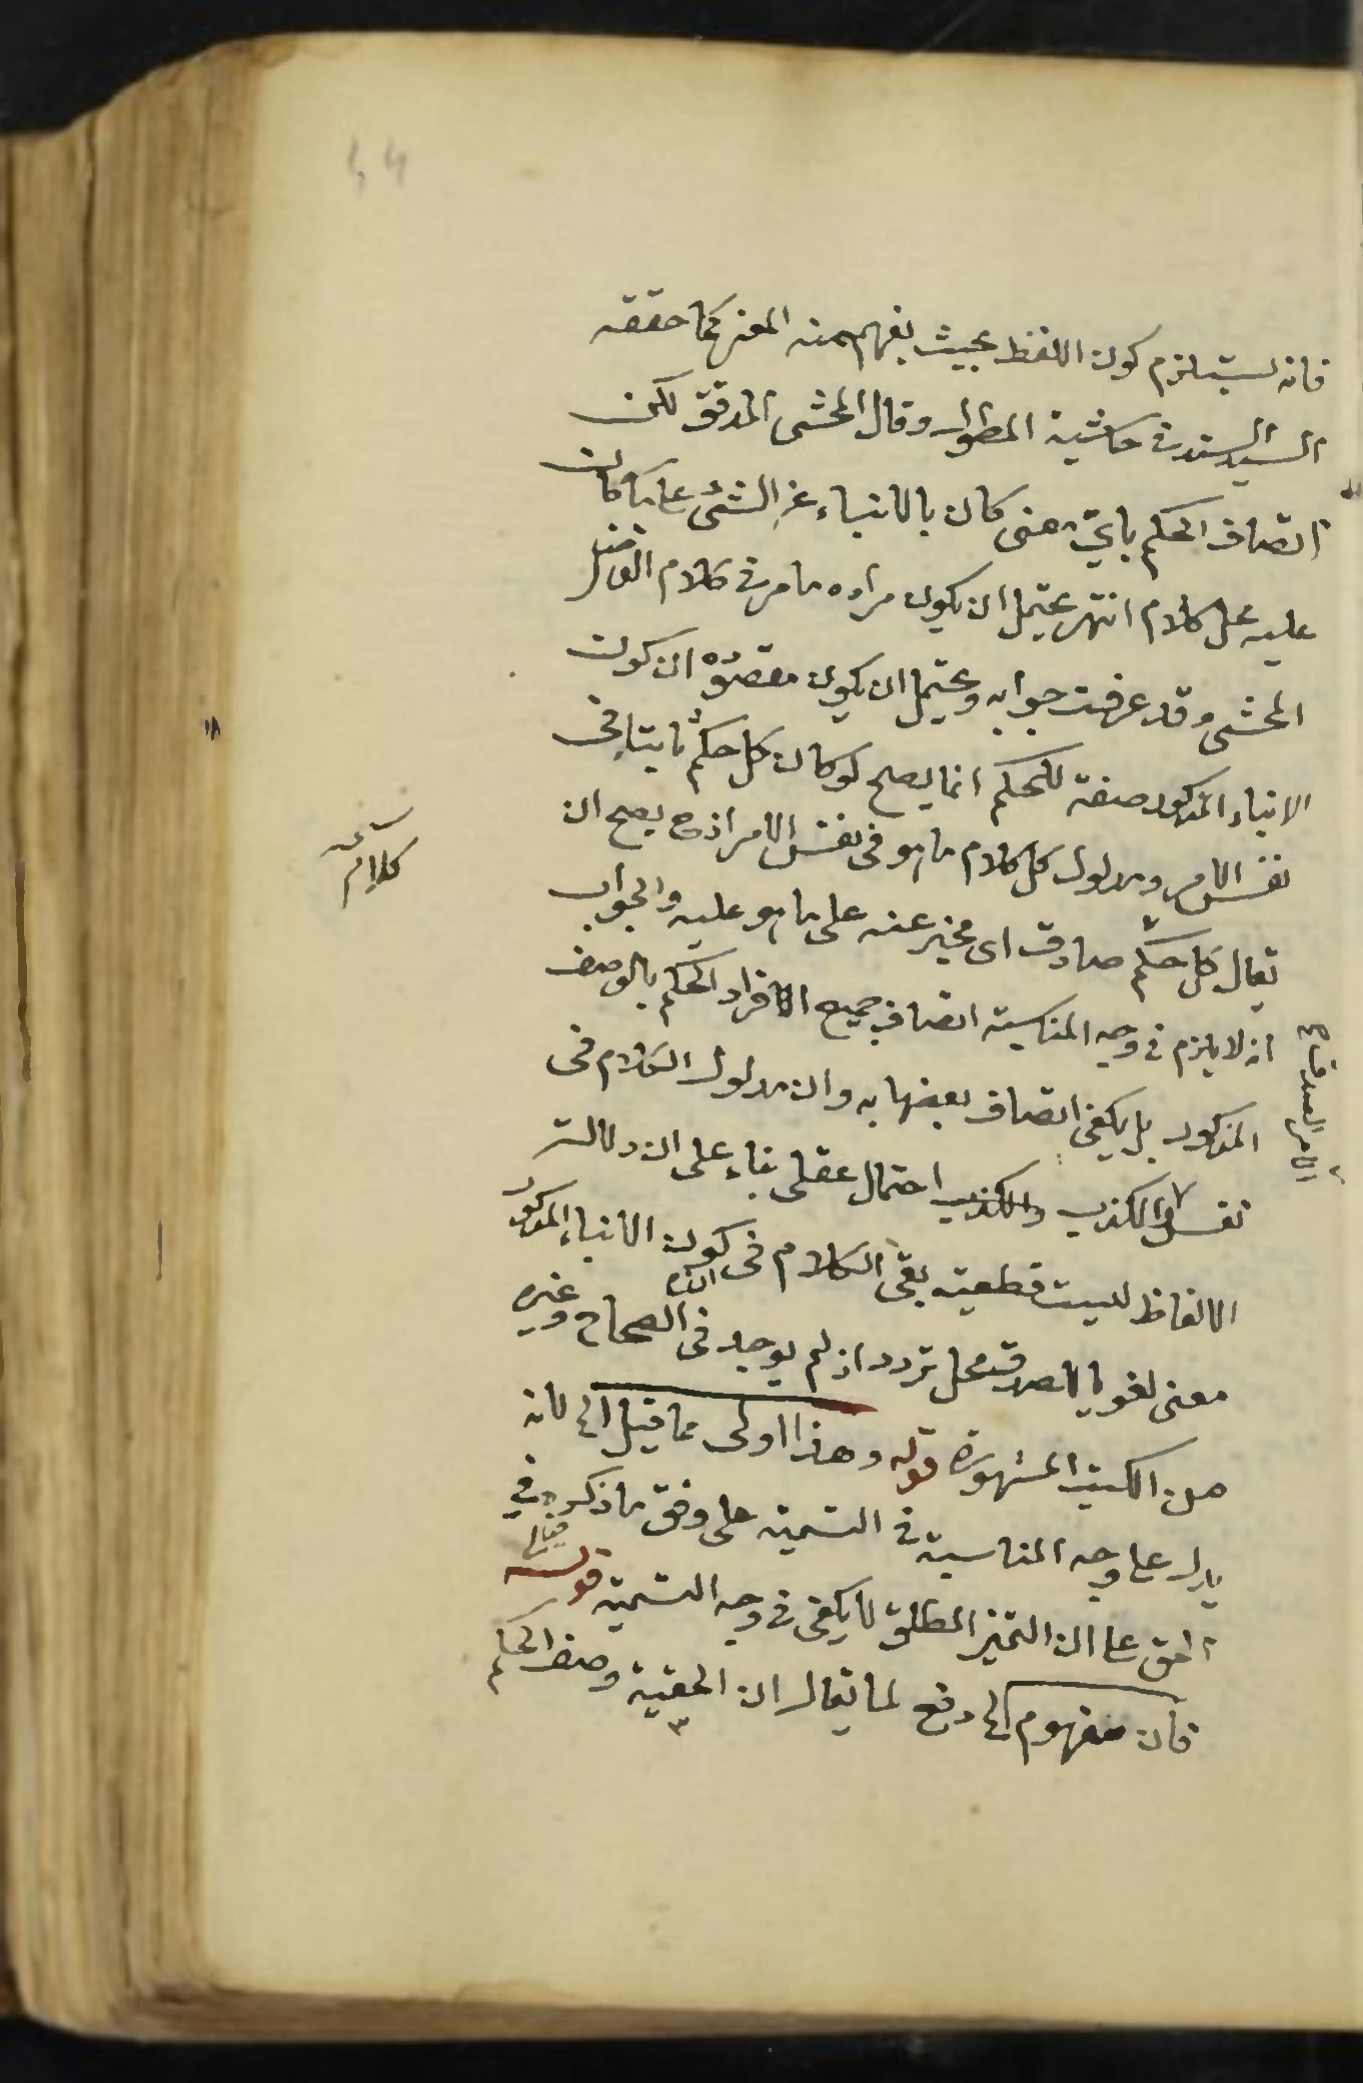 فانه يستلزم كون اللفظ بحيث يفهم منه المعنى كما حققه
السيد السند فى حاشية المطول وقال المحشى المدقق لكن
اتصاف الحكم باىّ معنى كان بالانباء عن الشئ على ما كان
عليه محل كلام انتهى يحتمل ان يكون مراده ما مر فى كلام الفاضل
المحشى وقد عرفت جوابه ويحتمل ان يكون مقصوده ان كون
الانباء المذكور صفة للحكم انما يصح لو كان كل حكم ثابتا فى
نفس الامر ومدلول كل كلام ما هو فى نفس الامر اذ ح يصح ان
يقال كل حكم صادق اى مخبر عنه على ما هو عليه والجواب
انه لا يلزم فى وجه المناسبة اتصاف جميع الافراد الحكم بالوصف
المذكور بل يكفى اتصاف بعضها به وان مدلول الكلام فى
نفس والكذب والكذب احتمال عقلى بناء على ان دلالة
الالفاظ ليست قطعية بقى الكلام فى كون الانباء المذكور
معنى لغويا للصدق محل تردد اذ لم يوجد فى الصحاح وغيره
من الكتب المشهورة قوله وهذا اولى مما قيل الخ لانه
يدل على وجه المناسبة فى التسمية على وفق ما ذكره فى
الحق على ان التميز المطلق لا يكفى فى وجه التسمية قوله
فان مفهوم الخ دفع لما يقال ان الحقية وصف الحكم
كلام
الامر الصدق